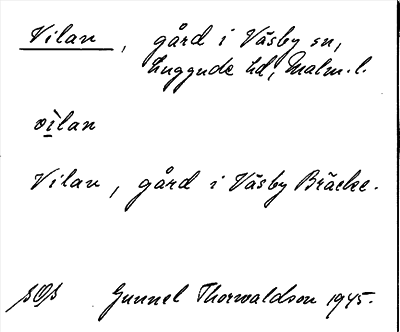 Vilan, gård i Väsby sn,
Luggude hd, Malm. l.
vìlan
Vilan, gård i Väsby Bräcke.
SOS Gunnel Thorwaldson 1945.